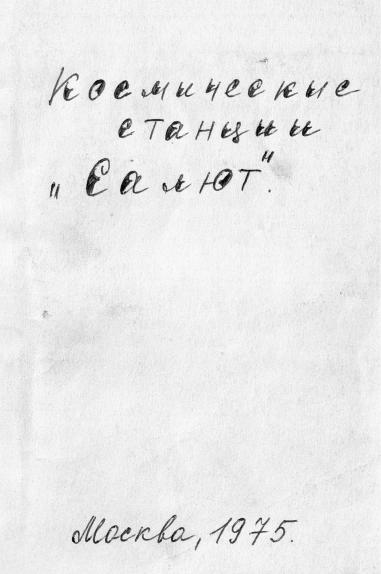 Космические
станции
"Салют".
Москва, 1975.